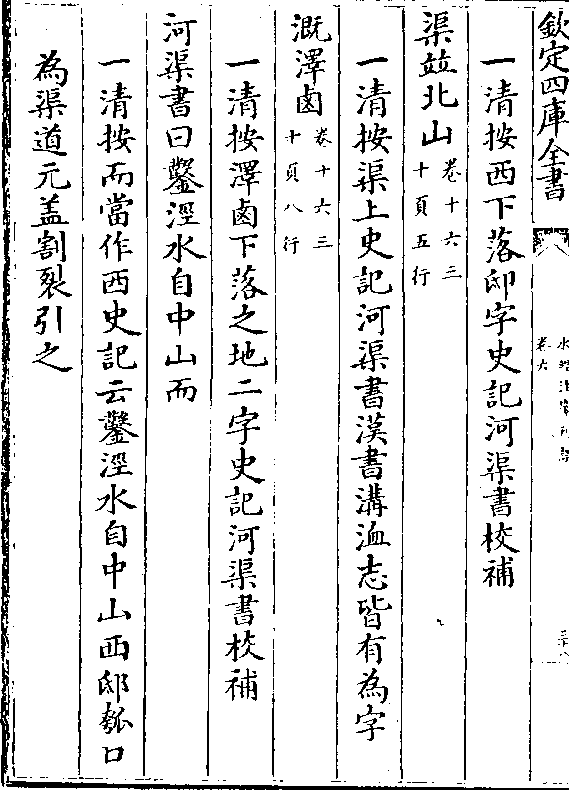 欽定四庫全書
一清按西下落邸字史記河渠書校補
渠並北山卷十六三十頁五行
一清按渠上史記河渠書漢書溝洫志皆有為字
溉澤鹵卷十六三十頁八行
一清按澤鹵下落之地二字史記河渠書校補
河渠書曰鑿涇水自中山而
一清按而當作西史記云鑿涇水自中山西邸瓠口
為渠道元盖割裂引之